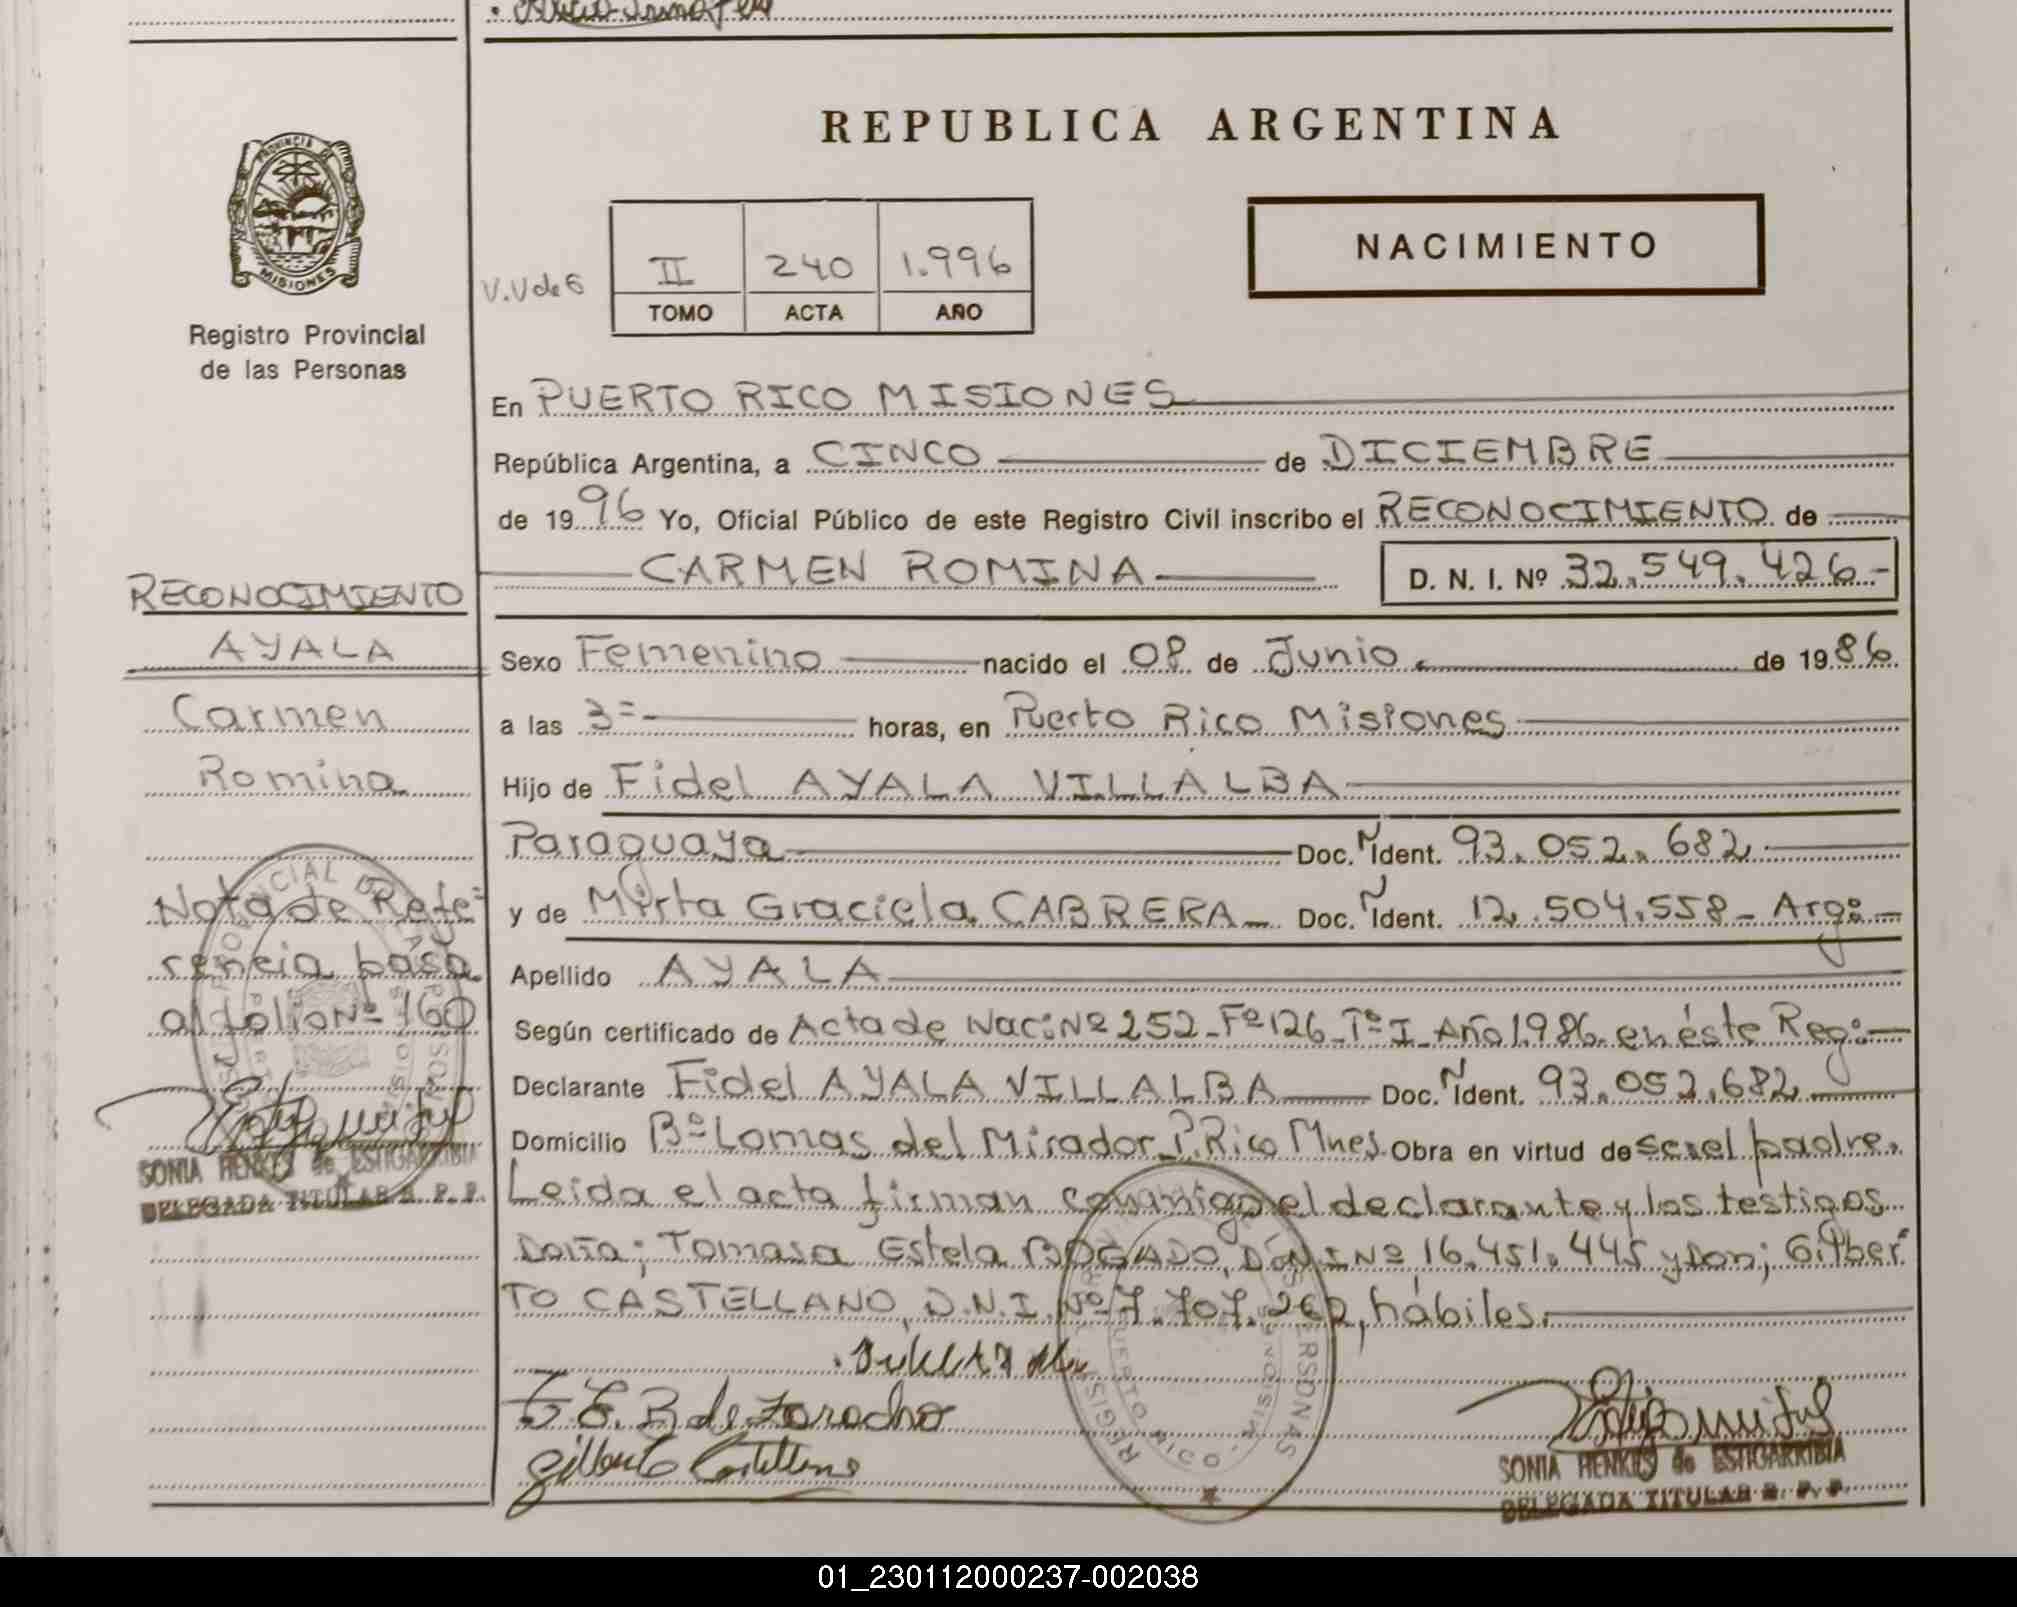 REPUBLICA ARGENTINA
PROVINCIA DE
MISIONES
Registro Provincial
de las Personas
V.V de 6
II 240 1.996
TOMO ACTA AÑO
NACIMIENTO
En PUERTO RICO MISIONES
República Argentina, a CINCO de DICIEMBRE
de 1996 Yo, Oficial Público de este Registro Civil inscribo el RECONOCIMIENTO de
CARMEN ROMINA D. N. I. Nº 32.549.426-
Sexo Femenino nacido el 08 de Junio de 1986
a las 3=- horas, en Puerto Rico Misiones
Hijo de Fidel AYALA VILLALBA
Paraguaya Doc. N Ident. 93.052.682
y de Myrta Graciela CABRERA Doc. N Ident. 12.504.558 - Arg:
Apellido AYALA
Según certificado de Acta de Nac: Nº 252 - Fº 126 - Tº I - Año 1.986 en éste Reg:
Declarante Fidel AYALA VILLALBA Doc. N Ident. 93.052.682
Domicilio Bº Lomas del Mirador P. Rico Mnes. Obra en virtud de ser el padre.
Leida el acta firman conmigo el declarante y los testigos
Doña; Tomasa Estela BOGADO, D.N.I Nº 16.451.445 y Don; Gilber
TO CASTELLANO, D.N.I. Nº 7.707.262, hábiles.
T E. B de
Gilberto Castellano
SONIA HENKES de ESTIGARRIBIA
DELEGADA TITULAR R. P. P.
RECONOCIMIENTO
AYALA
Carmen
Romina
Nota de Refe=
rencia pasa
al folio Nº 160
SONIA HENKES de ESTIGARRIBIA
DELEGADA TITULAR R. P. P.
01_230112000237-002038